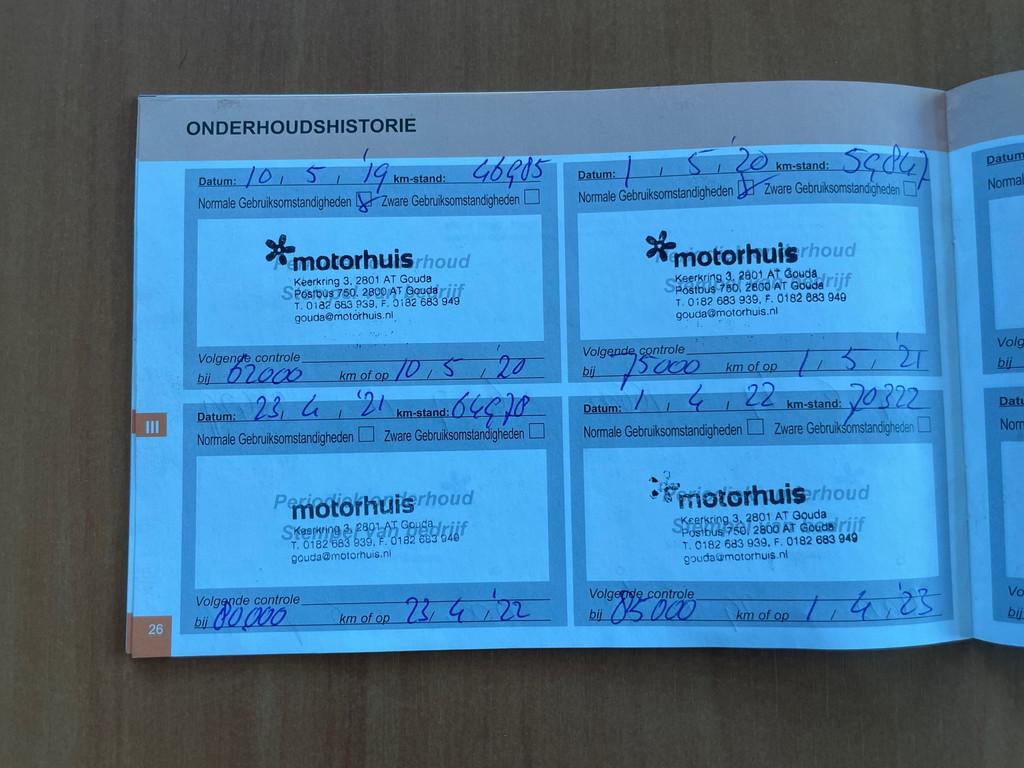 ONDERHOUDSHISTORIE
Datum: 10 , 5 , '19 km-stand: 46985
Normale Gebruiksomstandigheden Zware Gebruiksomstandigheden
motorhuis
Keerkring 3, 2801 AT Gouda
Postbus 750, 2800 AT Gouda
T. 0182 683 939, F. 0182 683 949
gouda@motorhuis.nl
Volgende controle
bij 62000 km of op 10 , 5 , '20
Datum: 1 , 5 , '20 km-stand: 59847
Normale Gebruiksomstandigheden Zware Gebruiksomstandigheden
motorhuis
Keerkring 3, 2801 AT Gouda
Postbus 750, 2800 AT Gouda
T. 0182 683 939, F. 0182 683 949
gouda@motorhuis.nl
Volgende controle
bij 75000 km of op 1 , 5 , '21
Datum: 23, 4 , '21 km-stand: 64978
Normale Gebruiksomstandigheden Zware Gebruiksomstandigheden
Periodiek onderhoud
Stempel van bedrijf
motorhuis
Keerkring 3, 2801 AT Gouda
T. 0182 683 939, F. 0182 683 949
gouda@motorhuis.nl
Volgende controle
bij 80,000 km of op 23, 4 , '22
Datum: 1 , 4 , 22 km-stand: 70322
Normale Gebruiksomstandigheden Zware Gebruiksomstandigheden
motorhuis
Keerkring 3, 2801 AT Gouda
Postbus 750, 2800 AT Gouda
T. 0182 683 939, F. 0182 683 949
gouda@motorhuis.nl
Volgende controle
bij 85000 km of op 1 , 4 , '23
III
26
Datum